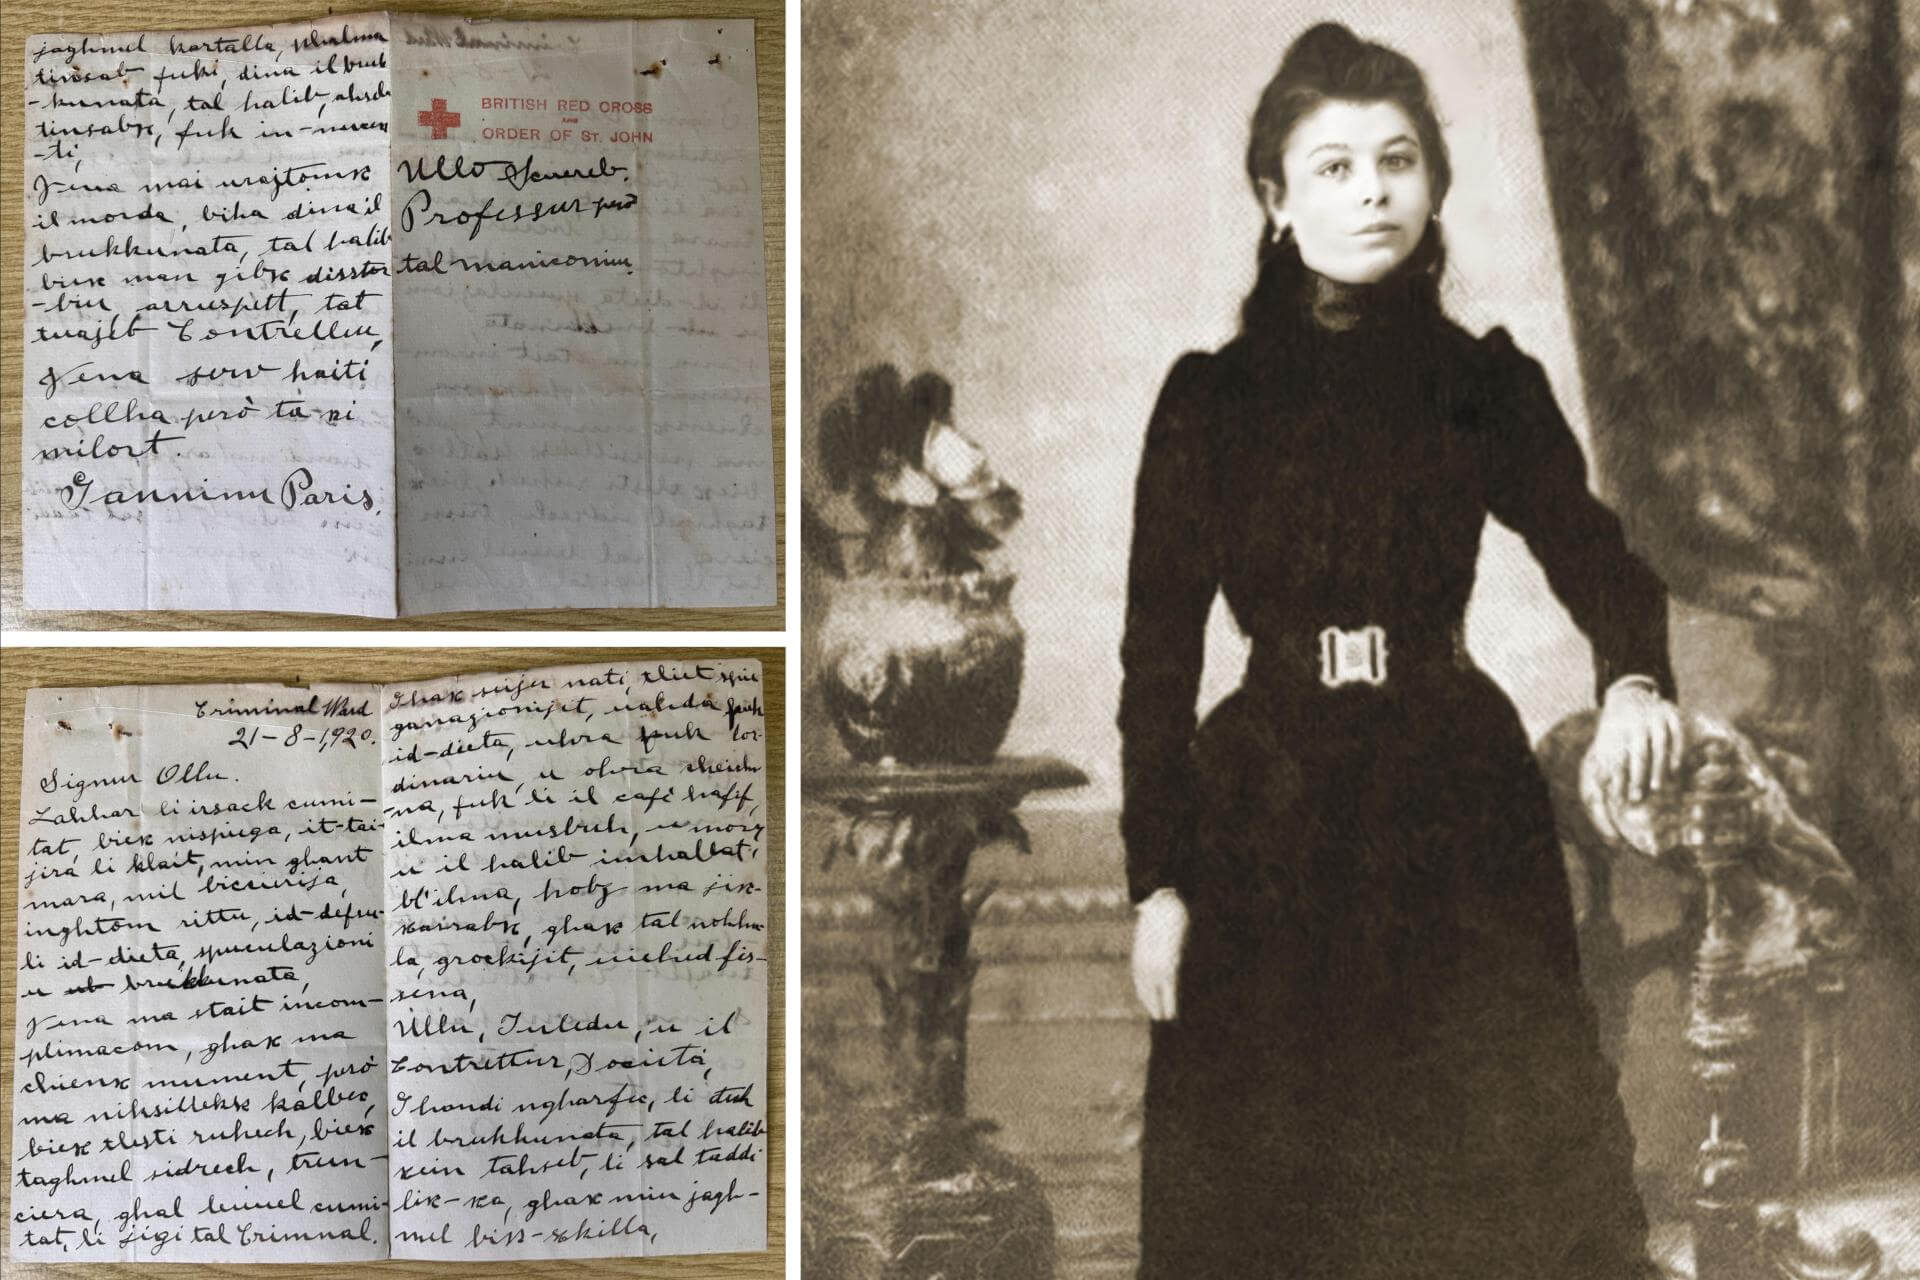 jaghmel kartalla, pkalma
tinsab fuki, dina il bruk
-kunata, tal halib, ahseb
tinsabx, fuk in-nucen
-ti,
Jena mai urajtomx
il morda, biha dina il
brukkunata, tal halib
biex man gibx disstor
-biu, arruspett, tat
tuajeb Contrelleu,
Jena serv haiti
collha però tà xi
milort.
Ganninu Paris.
BRITISH RED CROSS
AND
ORDER OF St. JOHN
Ullo Scuereb.
Professur però
tal manicomiu.
Criminal Ward
21-8-1,920.
Signur Ollu.
Zahhar li irsack cumi-
tat, biex nispiega, it-tai-
jira li klait, min ghant
mara, mil biccierija,
inghtom rittu, id-defeu-
li id-dieta, speculazioni
u ub brukkunata,
Jena ma stait incom-
plimacom, ghax ma
chienx mument, però
ma nihsillekx kalbec,
biex tlesti ruhech, biex
taghmel sidrech, trun-
ciera, ghal bumel cumi-
tat, li jigi tal Criminal.
Ghax seijer nati, xliet spie
ganazionijit, ualida fuk
id-dieta, uhra fuk lor-
dinariu, u ohra cheichu
-na, fuk li il cafè hafif,
ilma musbuh, u mory
u il halib imhallat,
bl'ilma, hobz ma jix-
xairabx, ghax tal nohhu-
la, grockijit, uiehed fis-
sena,
Ullu, Tuledu, u il
Contrettur, Società,
I handi ngharfec, li duk
il brukkunata, tal halib
xein tahseb, li sal taddi
lix-xa, ghax min jagh-
mel biss-skilla,